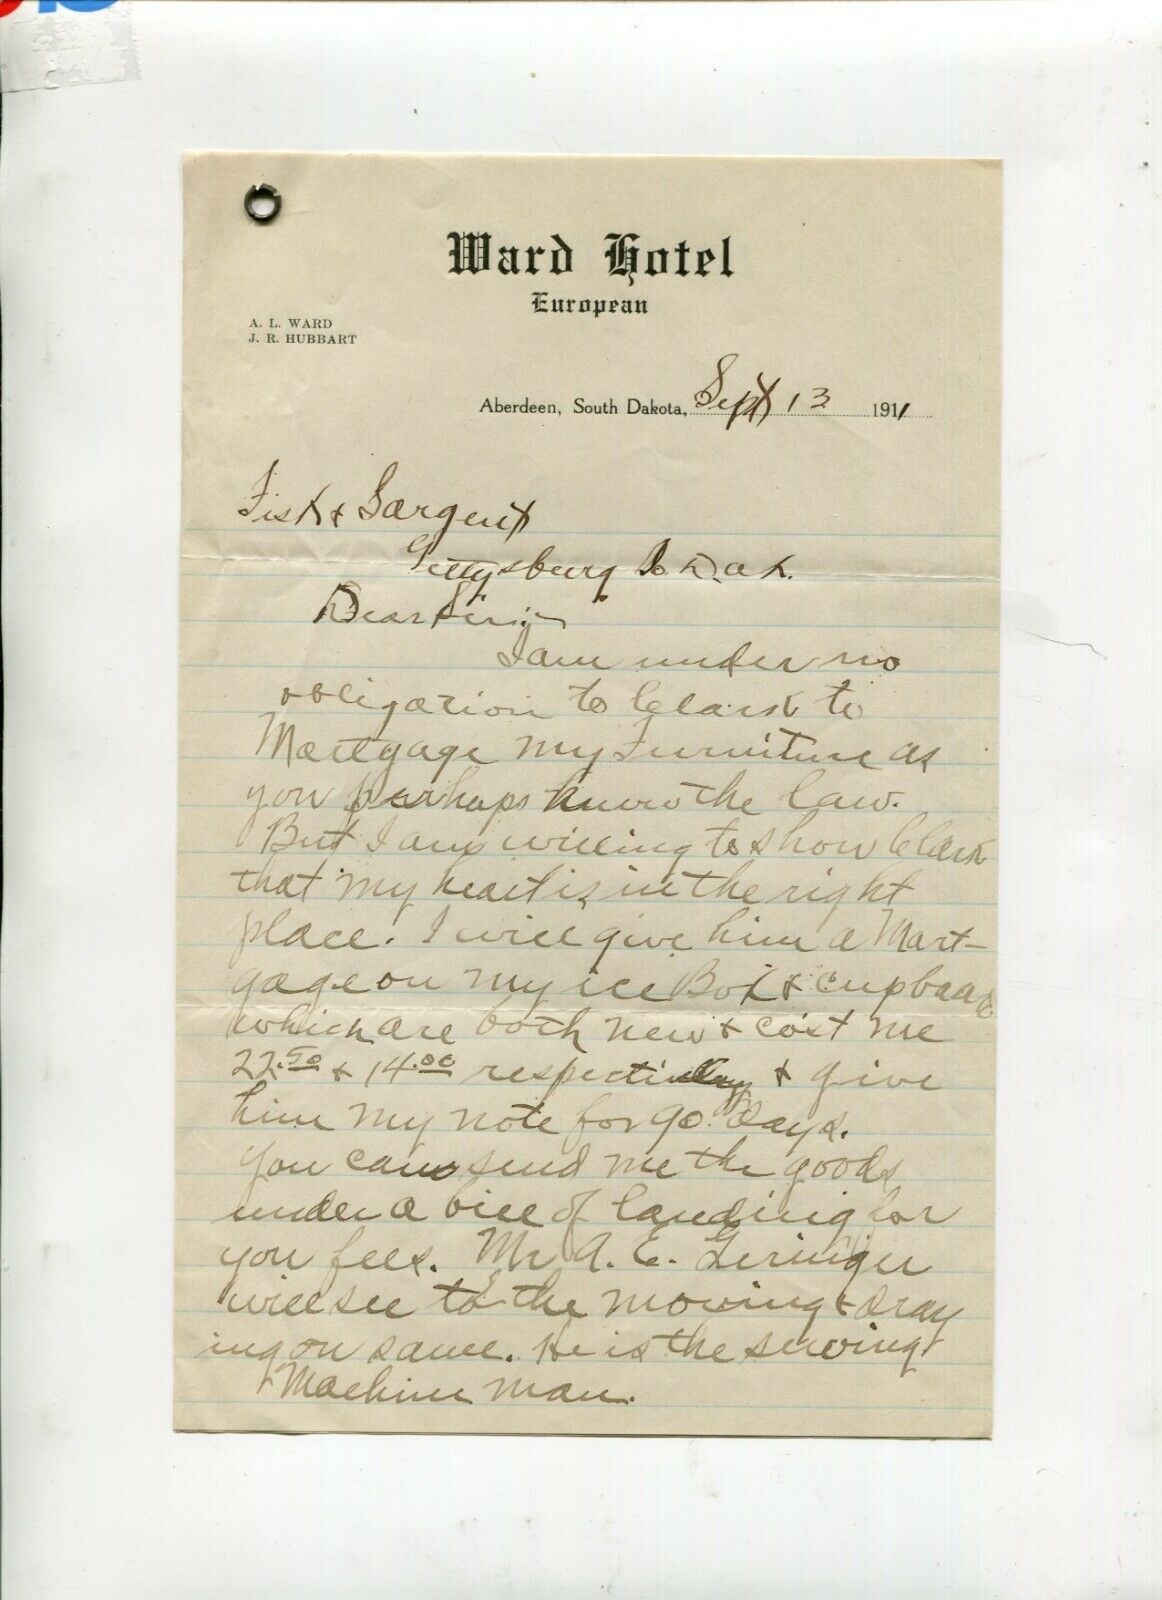 Ward Hotel
European
A. L. WARD
J. R. HUBBART
Aberdeen, South Dakota, Sept 13 1911
Fisk & Sargent
Gettysburg So. Dak.
Dear Sir:-
I am under no
obligation to Clark to
Mortgage my Furniture as
you perhaps know the law.
But I am willing to show Clark
that my heart is in the right
place. I will give him a Mort-
gage on my ice Box & cupboard
which are both new & cost me
22.50 & 14.00 respectively & give
him my note for 90 Days.
You can send me the goods
under a bill of landing for
you fees. Mr A. E. Geringer
will see to the moving & dray
ing on same. He is the sewing
Machine man.